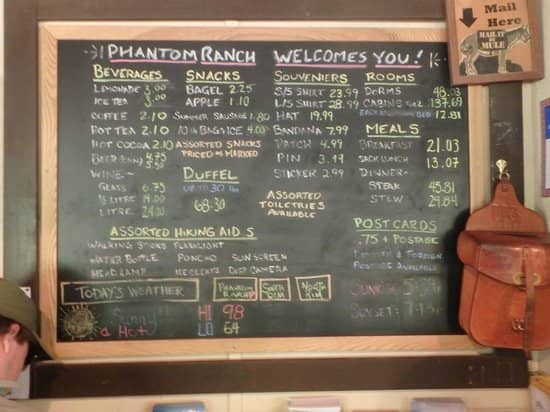 Mail
Here
MAIL IT
BY
MULE
PHANTOM RANCH WELCOMES YOU!
BEVERAGES
LEMONADE 3.00
ICE TEA 3.00
COFFEE 2.10
HOT TEA 2.10
HOT COCOA 2.10
BEER (CAN)
WINE
GLASS 6.75
½ LITRE
LITRE 24.00
SNACKS
BAGEL 2.25
APPLE 1.10
SUMMER SAUSAGE 1.80
10 lb BAG ICE 4.00
ASSORTED SNACKS
PRICED AS MARKED
DUFFEL
UP TO 30 lbs
68.30
SOUVENIERS
S/S SHIRT 23.99
L/S SHIRT 28.99
HAT 19.99
BANDANA 7.99
PATCH 4.99
PIN 3.99
STICKER 2.99
ASSORTED
TOILETRIES
AVAILABLE
ROOMS
DORMS 48.03
CABINS 137.69
EACH ADDITIONAL 12.81
MEALS
BREAKFAST 21.03
SACK LUNCH 13.07
DINNER
STEAK 45.81
STEW 29.84
POSTCARDS
.75 + POSTAGE
DOMESTIC & FOREIGN
POSTAGE AVAILABLE
SUNRISE
SUNSET
ASSORTED HIKING AIDS
WALKING STICKS FLASHLIGHT
WATER BOTTLE PONCHO SUNSCREEN
HEADLAMP MOLESKIN DISP CAMERA
TODAY'S WEATHER
PHANTOM
RANCH
SOUTH
RIM
NORTH
RIM
Sunny
Hot
HI 98
LO 64